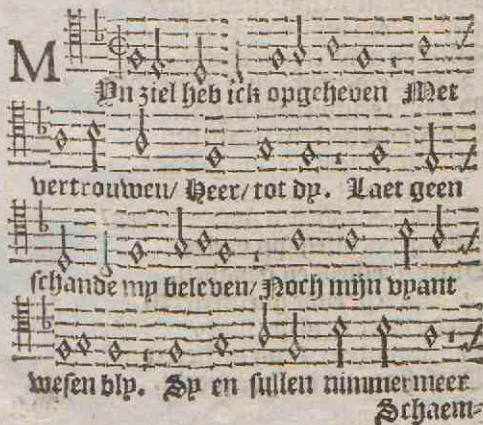 MYn ziel heb ick opgeheven Met
vertrouwen/ Heer/ tot dy. Laet geen
schande my beleven/ Noch mijn vyant
wesen bly. Sy en sullen nimmermeer
Schaem-